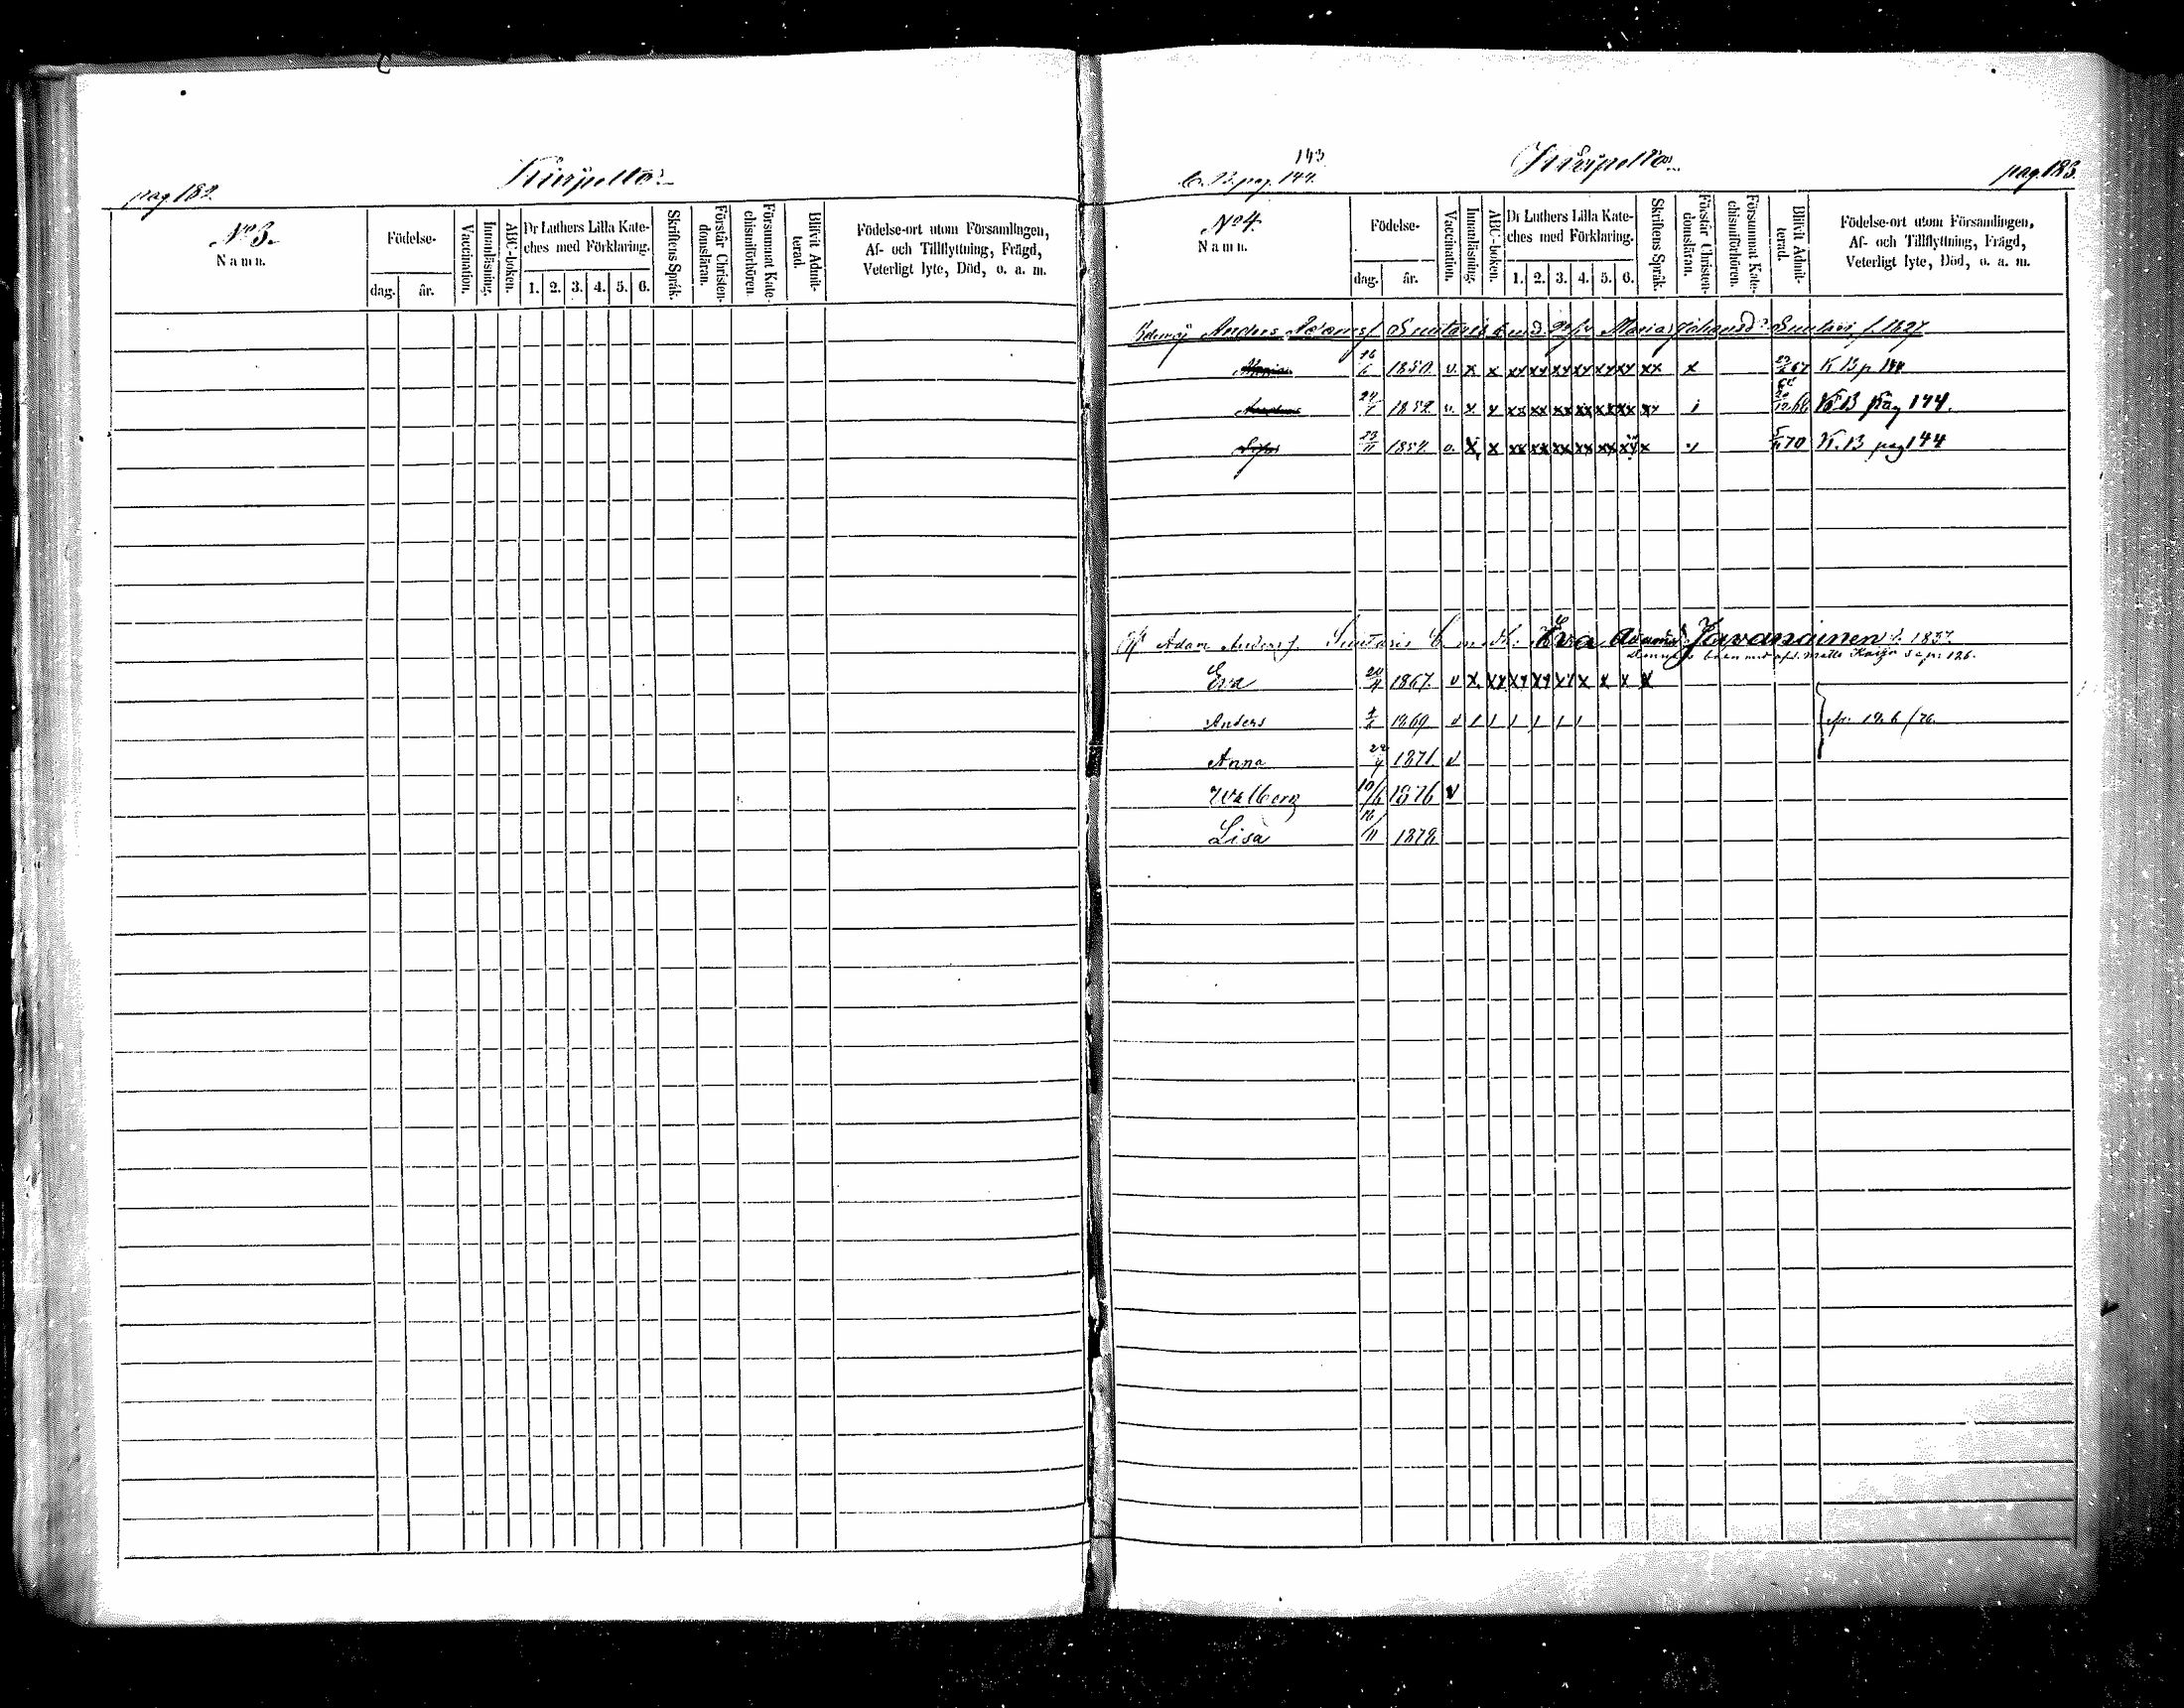 pag 182.
Kiripelto
N:o 3.
Namn.
Födelse-
dag. år.
Vaccination.
Innanläsning.
ABC-boken.
Dr Luthers Lilla Kate-
ches med Förklaring.
1. 2. 3. 4. 5. 6.
Skriftens Språk.
Förstår Christen-
domsläran.
Försummat Kate-
chismiförhören.
Blifvit Admit-
terad.
Födelse-ort utom Församlingen,
Af- och Tillflyttning, Frägd,
Veterligt lyte, Död, o. a. m.
143
C. B. pag. 144.
Kiripelto
pag. 183.
N:o 4.
Namn.
Födelse-
dag. år.
Vaccination.
Innanläsning.
ABC-boken.
Dr Luthers Lilla Kate-
ches med Förklaring.
1. 2. 3. 4. 5. 6.
Skriftens Språk.
Förstår Christen-
domsläran.
Försummat Kate-
chismiförhören.
Blifvit Admit-
terad.
Födelse-ort utom Församlingen,
Af- och Tillflyttning, Frägd,
Veterligt lyte, Död, o. a. m.
Anders Adamsf. Suutaris Maria Johansd. f. 1827
Maria 16/6 1850 v. x x xx xx xx xx xx xx xx x 67 K B p 144
24/7 1852 v. x x xx xx xx xx xx xx xx K B pag 144.
Sofia 23/11 1854 v. x x xx xx xx xx xx xx x 70 K. B pag 144
Adam Andersf. Suutaris Eva Adamsd. Javanainen f. 1837
barn med Matts p. 126.
Eva 1867 v x xx xx xx xx x x x x
Anders 1869 v / / / / / /
Anna 22/4 1871 v
Walborg 10/6 1876 v
Lisa 16/11 1878